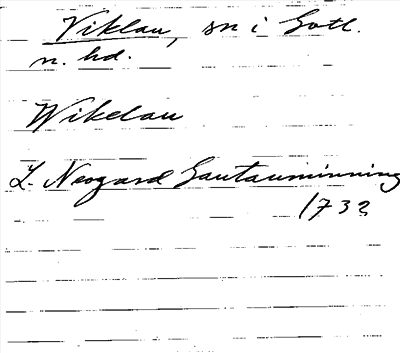 Viklau, sn i Gotl.
n. hd.
Wikelau
L. Neogard Gautauminning
1732